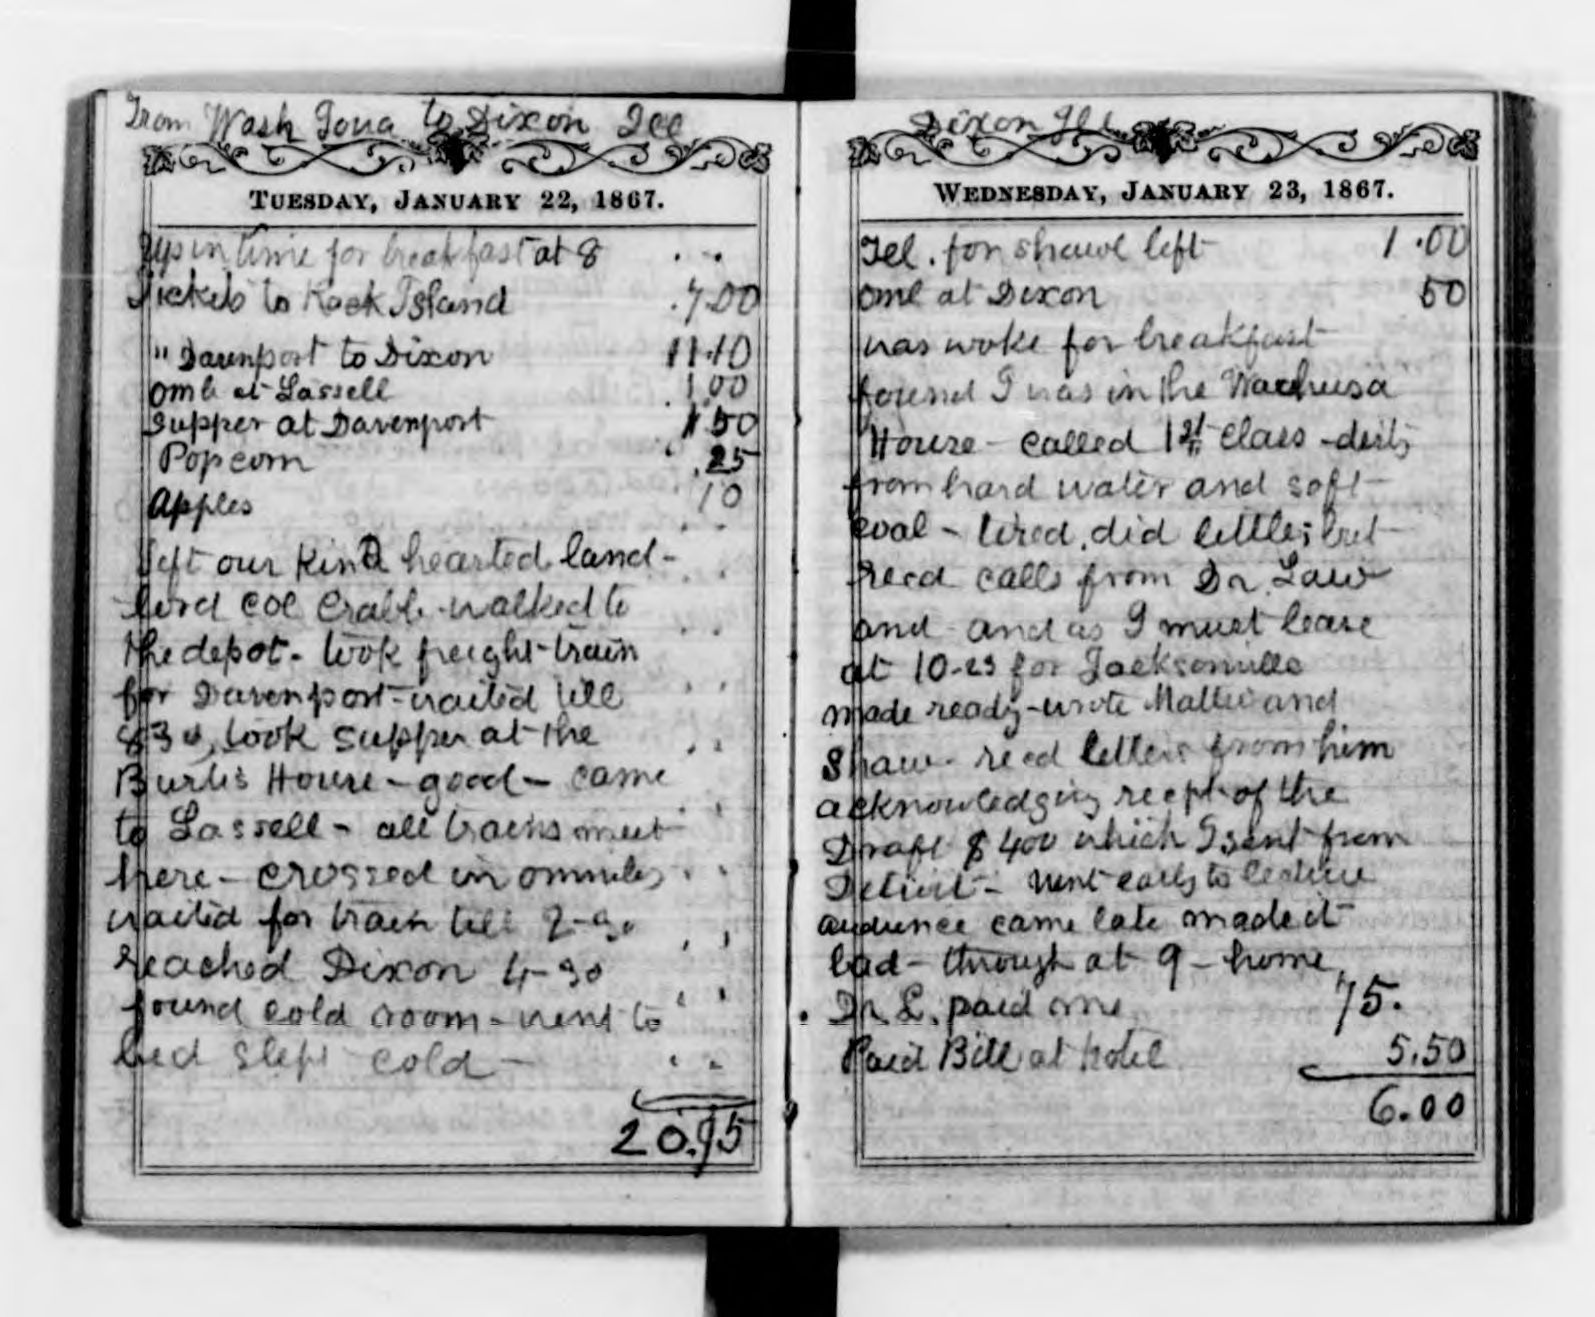 From Wash Iowa to Dixon Ill
TUESDAY, JANUARY 22, 1867.
Up in time for breakfast at 8
Tickets to Rock Island .7.00
" Davenport to Dixon 11.10
omb at Lassell 1.00
Supper at Davenport 1 50
Pop corn .25
Apples 10
Left our kind hearted land-
lord Col Crabb. walked to
the depot - took freight train
for Davenport - waited till
8 30, took supper at the
Burtis House - good - came
to Lassell - all trains meet
here - crossed in omnibs
waited for train till
reached Dixon 4-30
found cold room - went to
bed slept cold -
20.95
Dixon Ill
WEDNESDAY, JANUARY 23, 1867.
Tel. for shawl left 1.00
omb at Dixon 50
was woke for breakfast
found I was in the Nachusa
House - called 1st class - dirty
from hard water and soft
coal - tired, did little; but
recd calls from Dr. Law
and - and as I must leave
at 10-23 for Jacksonville
made ready - wrote Mattie and
Shaw. recd letters from him
acknowledging recept of the
Draft $400 which I sent from
Detroit - went early to lecture
audience came late made it
bad - through at 9 - home,
Dr. L. paid me 75.
Paid Bill at hotel 5.50
6.00